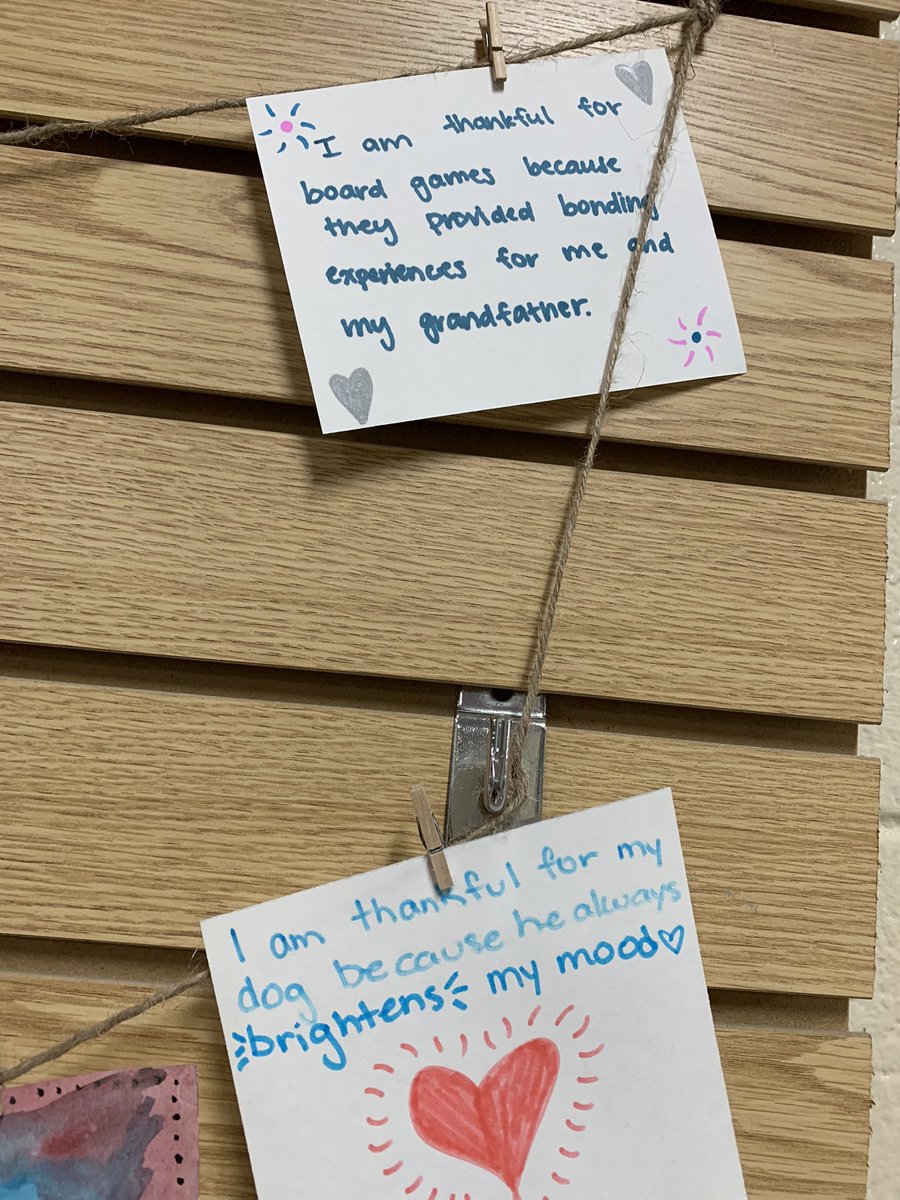 I am thankful for
board games because
they provided bonding
experiences for me and
my grandfather.
I am thankful for my
dog because he always
brightens my mood